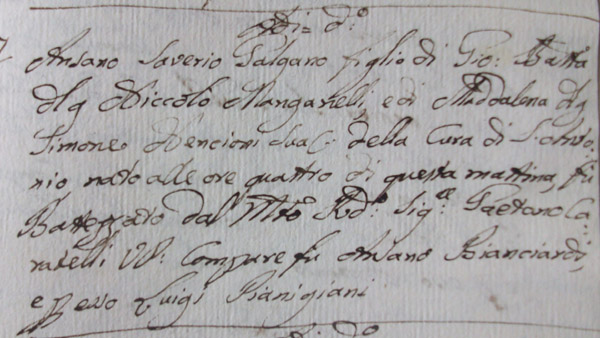 Adi= d.o
Ansano Saverio Galgano figlio di Gio: Batta
dlq Niccolò Manganelli, e di Maddalena dlq
Simone Vencioni sua C: della Cura di S. Anto:
nio nato alle ore quattro di questa mattina, fu
Battezzato dal Mto Rd.o Sig.re Gaetano Ca:
ratelli VC: Compare fu Ansano Bianciardi,
e p esso Luigi Banigiani